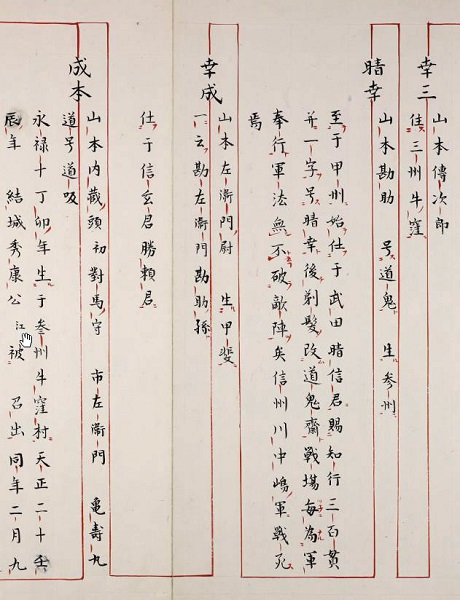 幸三
山本傳次郎
住三州牛窪
晴幸
山本勘助 号道鬼 生参州
至于甲州始仕于武田晴信君賜知行三百貫
并一字号晴幸後剃髪改道鬼齋戰場毎為軍
奉行軍法無不破敵陣矣信州川中嶋軍戰死
焉
幸成
山本左衛門尉 生甲斐
一云勘左衛門勘助孫
仕于信玄君勝頼君
成本
山本内蔵頭初對馬守 市左衛門 亀壽丸
道号道吸
永禄十丁卯年生于参州牛窪村天正二十壬
辰年 結城秀康公江被 召出同年二月九